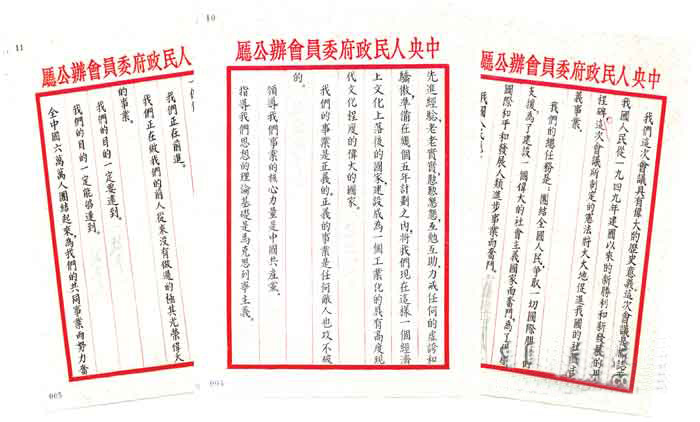 中央人民政府委員會辦公廳
我們這次會議具有偉大的歷史意義。這次會議是標誌着
我國人民從一九四九年建國以來的新勝利和新發展的里
程碑，這次會議所制定的憲法將大大地促進我國的社會主
義事業。
我們的總任務是：團結全國人民，爭取一切國際朋友的
支援，為了建設一個偉大的社會主義國家而奮鬥，為了保衛
國際和平和發展人類進步事業而奮鬥。
10
中央人民政府委員會辦公廳
先進經驗，老老實實，勤勤懇懇，互勉互助，力戒任何的虛誇和
驕傲，準備在幾個五年計劃之內，將我們現在這樣一個經濟
上文化上落後的國家，建設成為一個工業化的具有高度現
代文化程度的偉大的國家。
我們的事業是正義的。正義的事業是任何敵人也攻不破
的。
領導我們事業的核心力量是中國共產黨。
指導我們思想的理論基礎是馬克思列寧主義。
004
11
人民政府委員會辦公廳
我們正在前進。
我們正在做我們的前人從來沒有做過的極其光榮偉大
的事業。
我們的目的一定要達到。
我們的目的一定能夠達到。
全中國六萬萬人團結起來，為我們的共同事業而努力奮
005